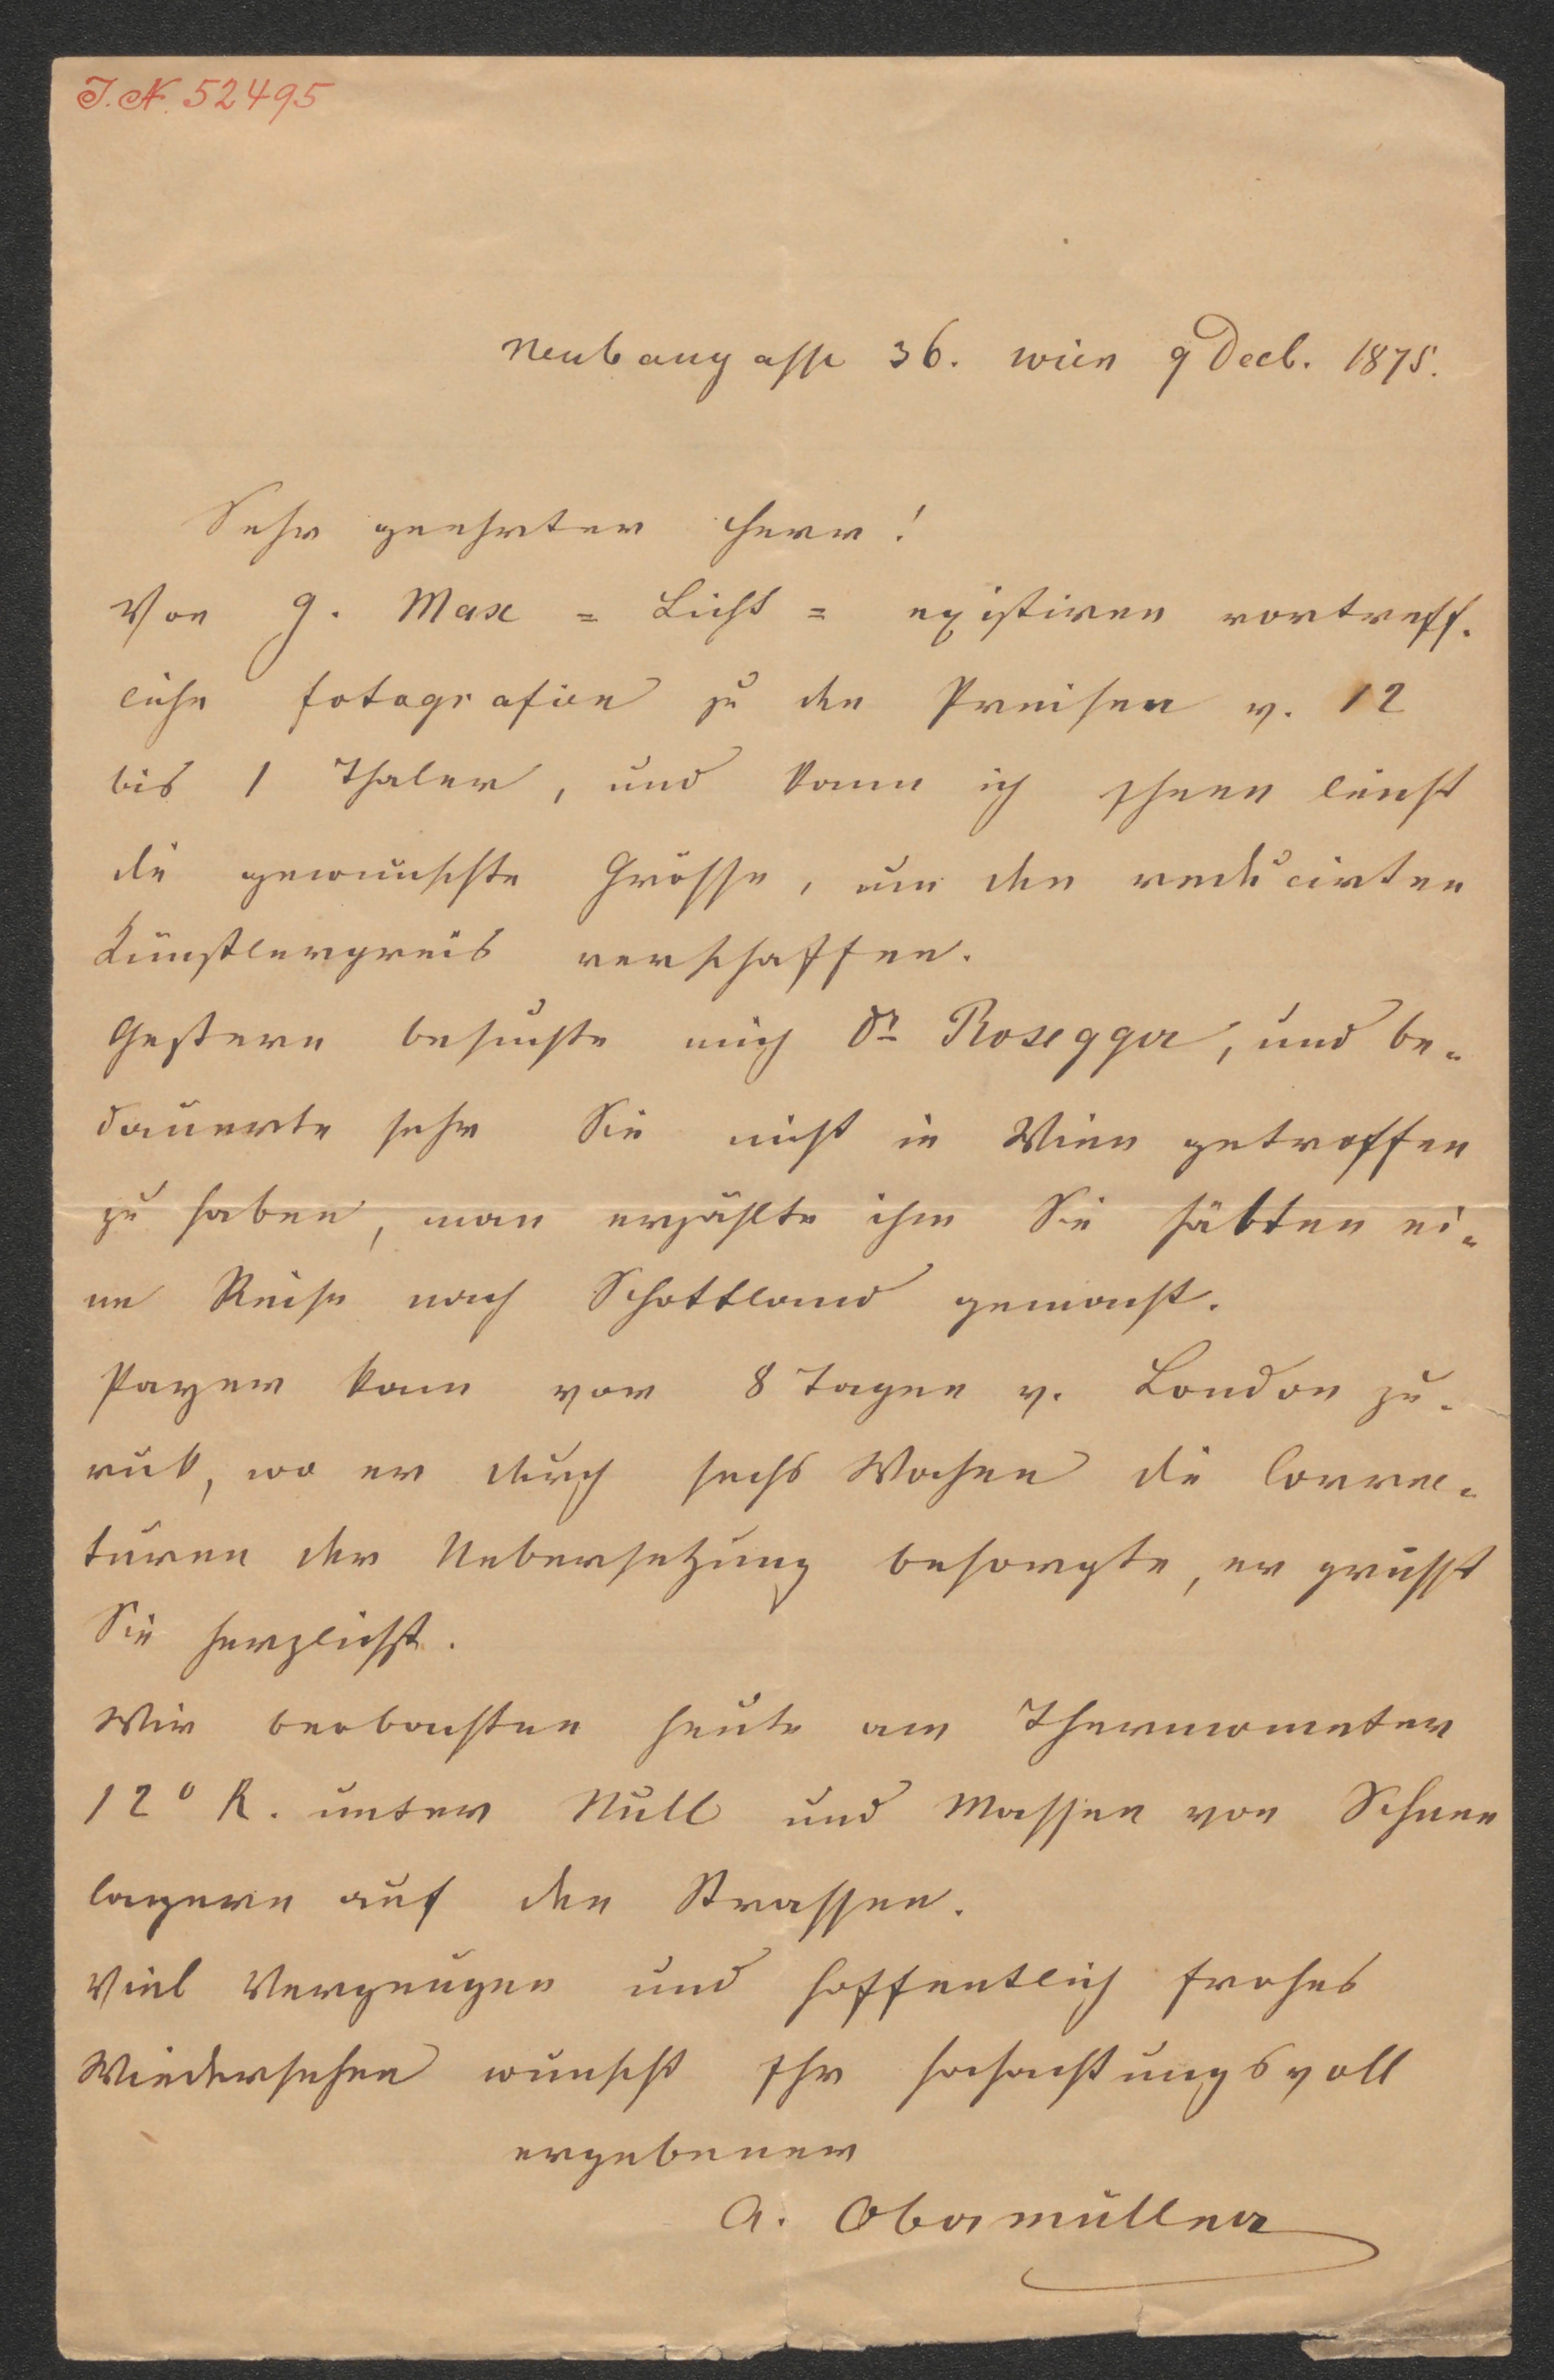 J. N. 52495
Neubaugasse 36. Wien 9 Decb. 1875.
Sehr geehrter Herr!
Von G. Max = Licht = existiren vortreff-
liche Fotografien zu den Preisen v. 12
bis 1 Thaler, und kann ich Ihnen leicht
die gewünschte Grösse, um den reducirten
Künstlerpreis verschaffen.
Gestern besuchte mich Dr Rosegger, und be-
dauerte sehr Sie nicht in Wien getroffen
zu haben, man erzählte ihm Sie hätten ei-
ne Reise nach Schottland gemacht.
Payer kam vor 8 Tagen v. London zu-
rük, wo er durch sechs Wochen die Correc-
turen der Uebersetzung besorgte, er grüsst
Sie herzlichst.
Wir beobachten heute am Thermometer
12° R. unter Null und Massen von Schnee
lagern auf den Strassen.
Viel Vergnügen und hoffentlich frohes
Wiedersehen wünscht Ihr hochachtungsvoll
ergebener
A. Obermüllner